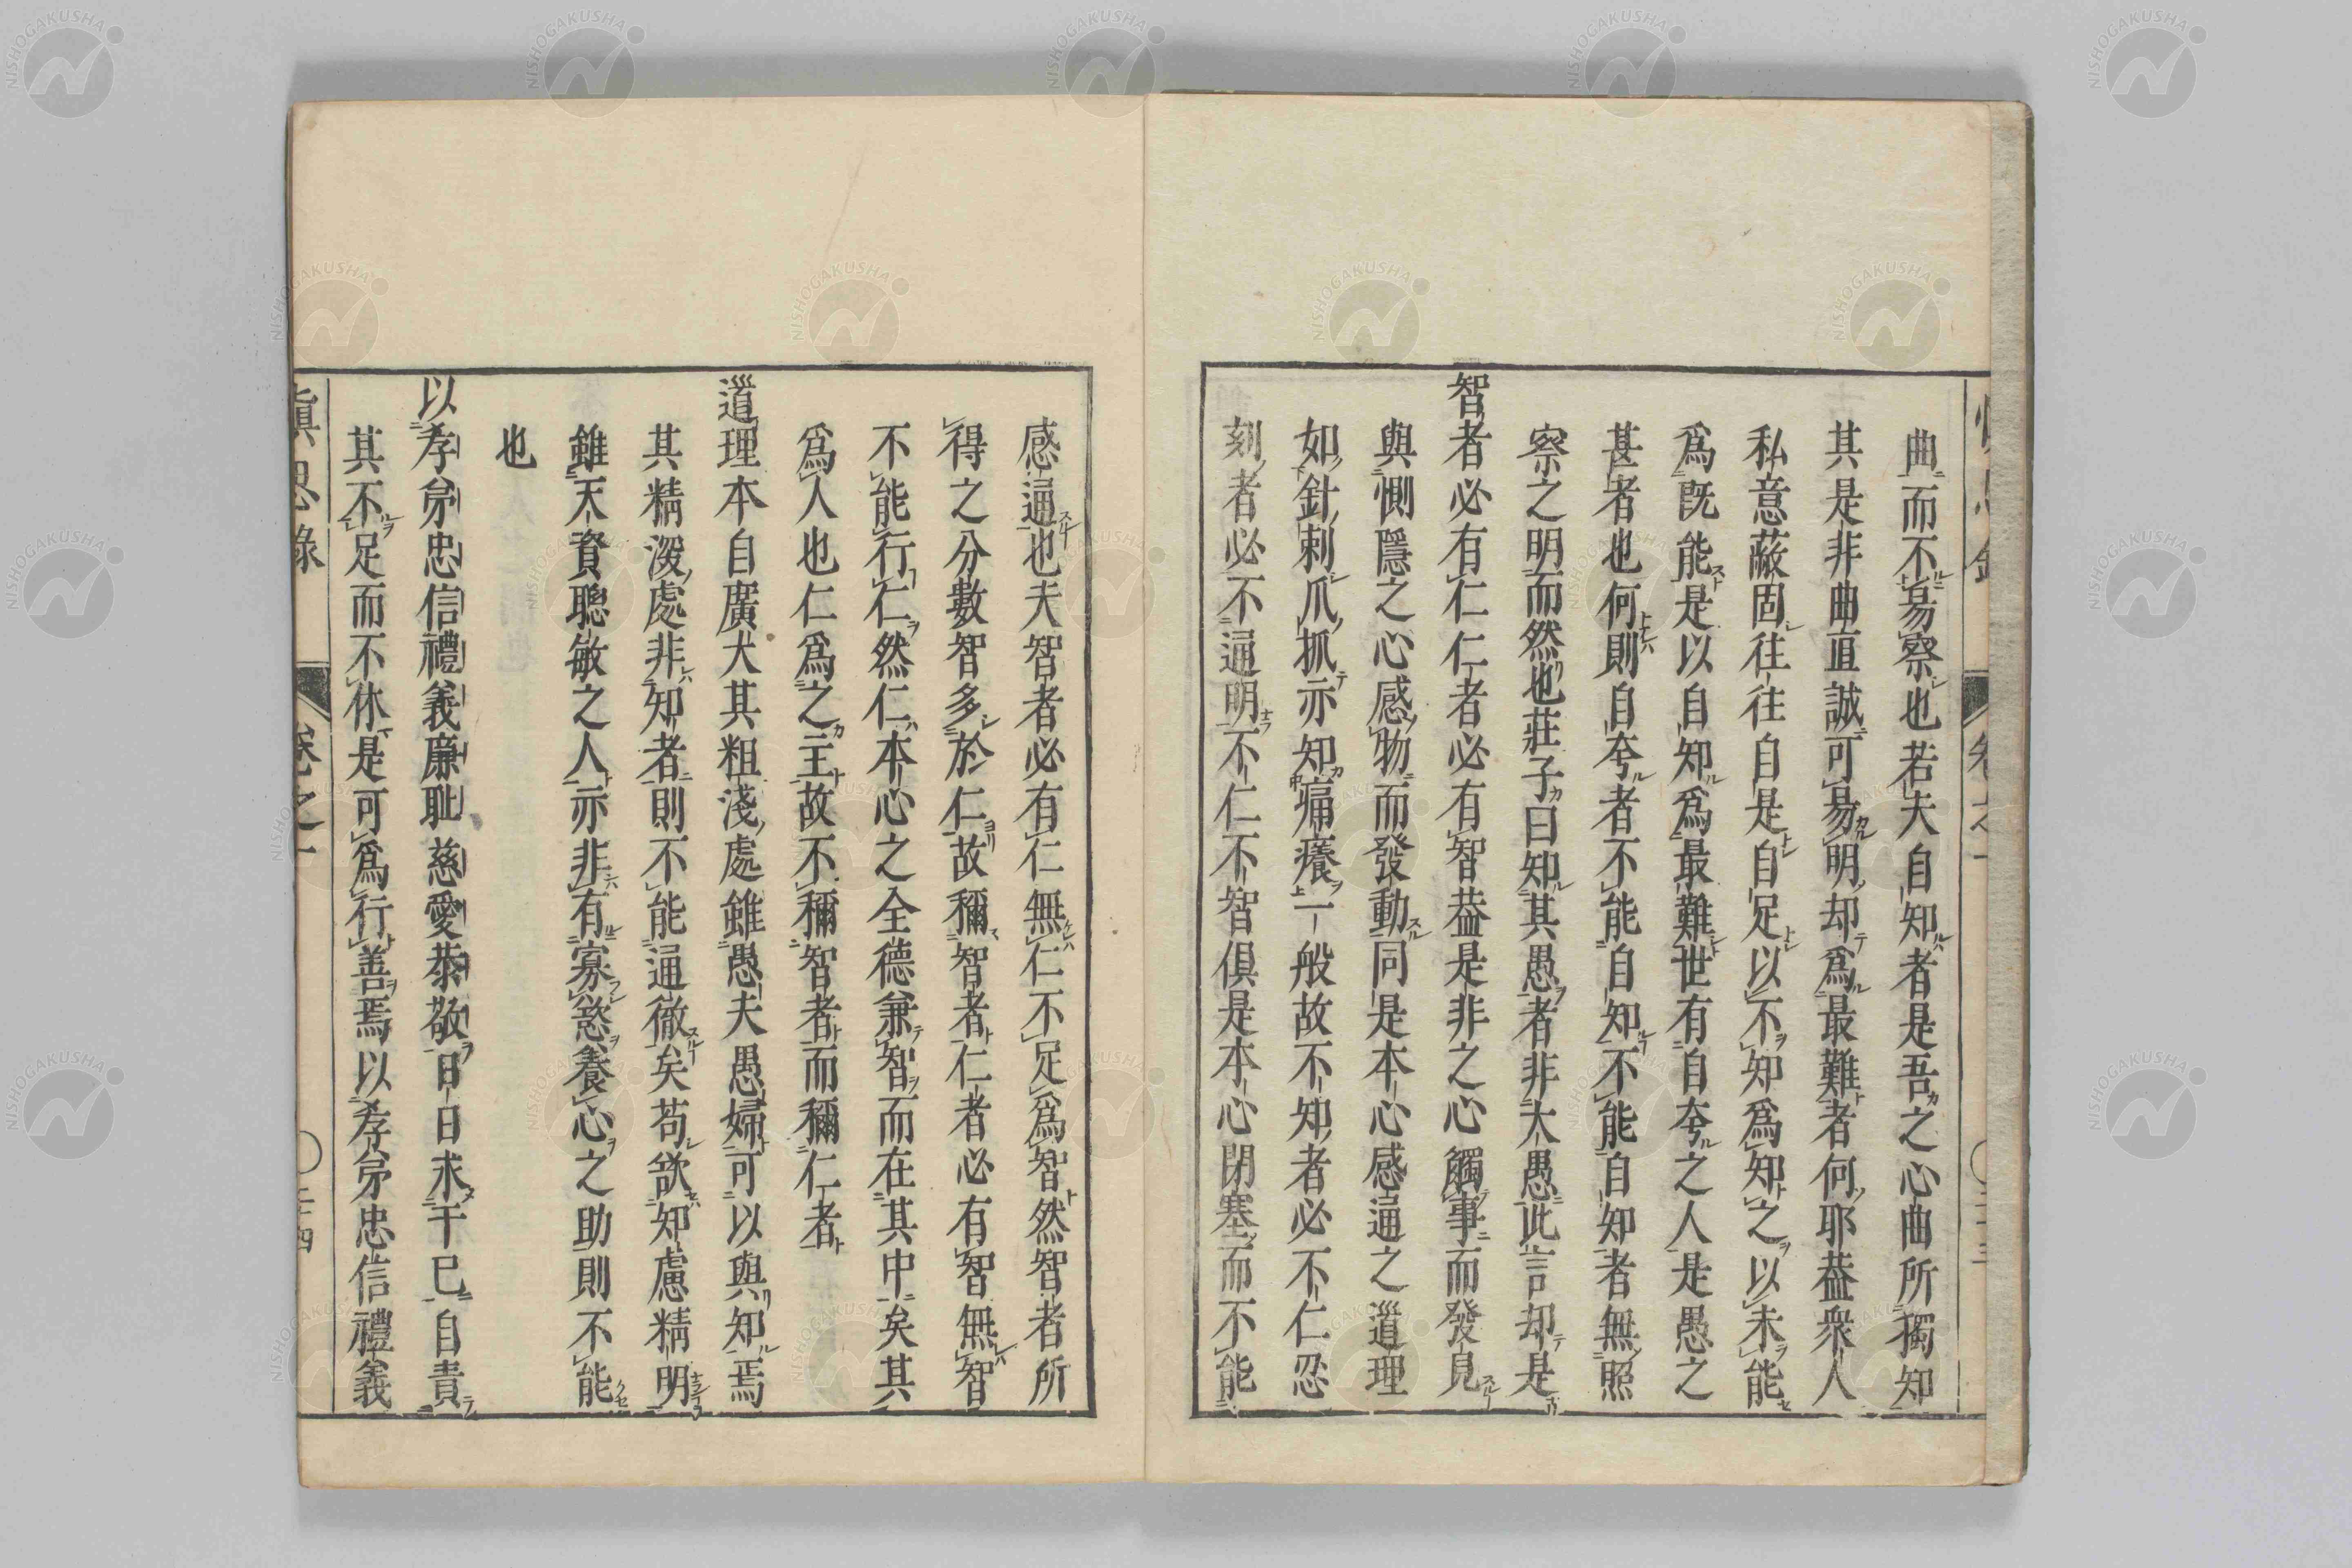 曲而不易察也若夫自知者是吾之心曲所獨知
其是非曲直誠可易明却爲最難者何耶葢衆人
私意蔽固往往自是自足以不知爲知之以未能
爲既能是以自知爲最難世有自夸之人是愚之
甚者也何則自夸者不能自知不能自知者無照
察之明而然也莊子曰知其愚者非大愚此言却是
智者必有仁仁者必有智葢是非之心觸事而發見
與惻隱之心感物而發動同是本心感通之道理
如針刺爪抓亦知痛癢一般故不知者必不仁忍
刻者必不通明不仁不智俱是本心閉塞而不能
感通也夫智者必有仁無仁不足爲智然智者所
得之分數智多於仁故稱智者仁者必有智無智
不能行仁然仁本心之全德兼智而在其中矣其
爲人也仁爲之主故不稱智者而稱仁者
道理本自廣大其粗淺處雖愚夫愚婦可以與知焉
其精深處非知者則不能通徹矣苟欲知慮精明
雖天資聰敏之人亦非有寡慾養心之助則不能
也
以孝弟忠信禮義廉耻慈愛恭敬日日求于己自責
其不足而不休是可爲行善焉以孝弟忠信禮義
愼思錄
卷之一
二十四